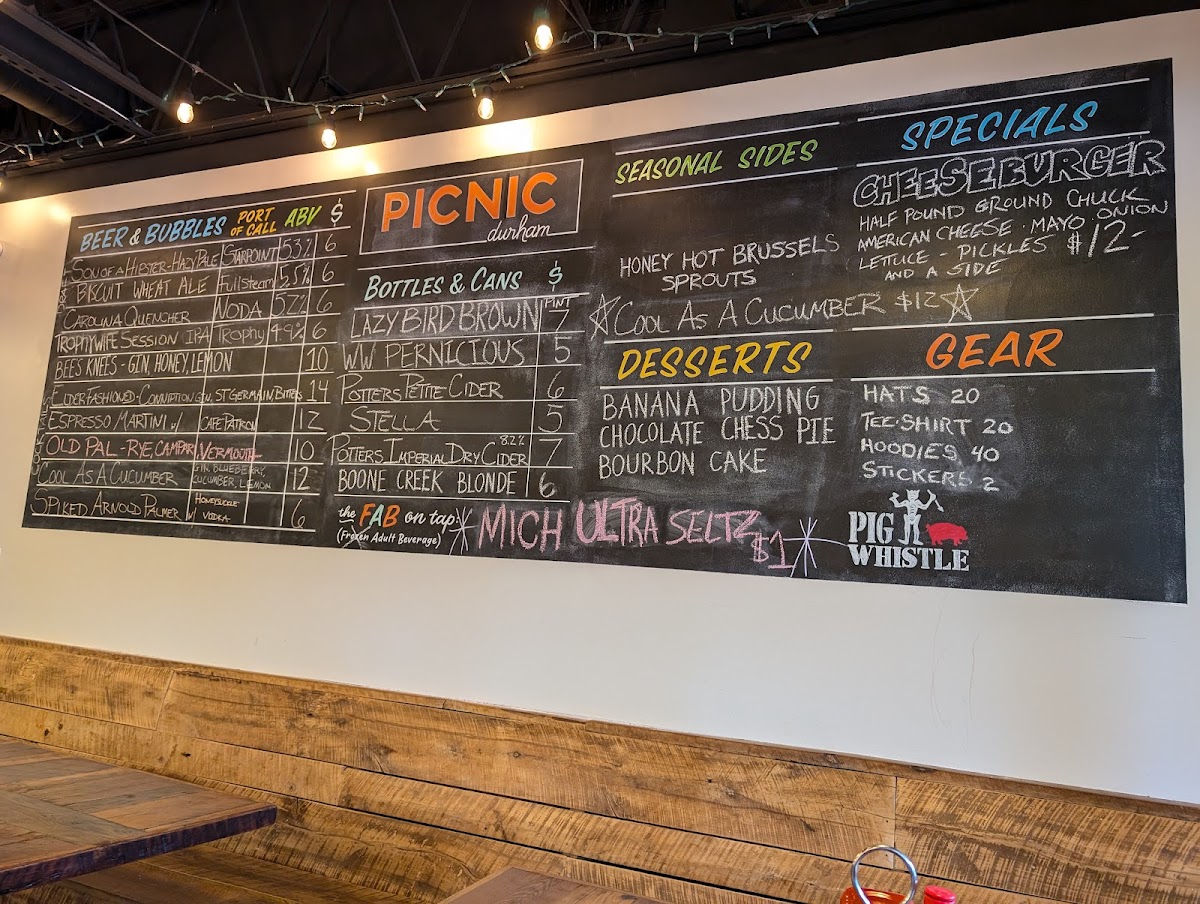 BEER & BUBBLES PORT OF CALL ABV $
SON OF A HIPSTER-HAZY PALE STARPOINT 5.3% 6
BISCUIT WHEAT ALE Fullsteam 5.5% 6
CAROLINA QUENCHER NODA 5.2% 6
TROPHYWIFE SESSION IPA TROPHY 4.9% 6
BEES KNEES - GIN, HONEY, LEMON 10
ST GERMAIN BITTERS 14
ESPRESSO MARTINI W/ CAFE PATRON 12
OLD PAL - RYE, CAMPARI, VERMOUTH 10
COOL AS A CUCUMBER GIN, BLUEBERRY, CUCUMBER, LEMON 12
SPIKED ARNOLD PALMER W/ HONEYSUCKLE VODKA 6
PICNIC
durham
BOTTLES & CANS $
LAZY BIRD BROWN PINT 7
WW PERNICIOUS 5
POTTERS PETITE CIDER 6
STELLA 5
POTTERS IMPERIAL DRY CIDER 8.2% 7
BOONE CREEK BLONDE 6
the FAB on tap:
(Frozen Adult Beverage)
MICH ULTRA SELTZ $1
SEASONAL SIDES
HONEY HOT BRUSSELS
SPROUTS
COOL AS A CUCUMBER $12
SPECIALS
CHEESEBURGER
HALF POUND GROUND CHUCK
AMERICAN CHEESE · MAYO · ONION
LETTUCE - PICKLES $12-
AND A SIDE
DESSERTS
BANANA PUDDING
CHOCOLATE CHESS PIE
BOURBON CAKE
GEAR
HATS 20
TEE-SHIRT 20
HOODIES 40
STICKERS 2
PIG
WHISTLE